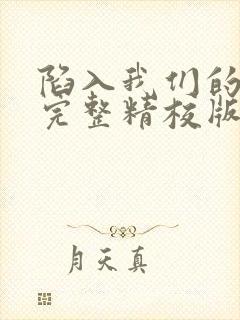 陷入我们的
完整精校版
月天真